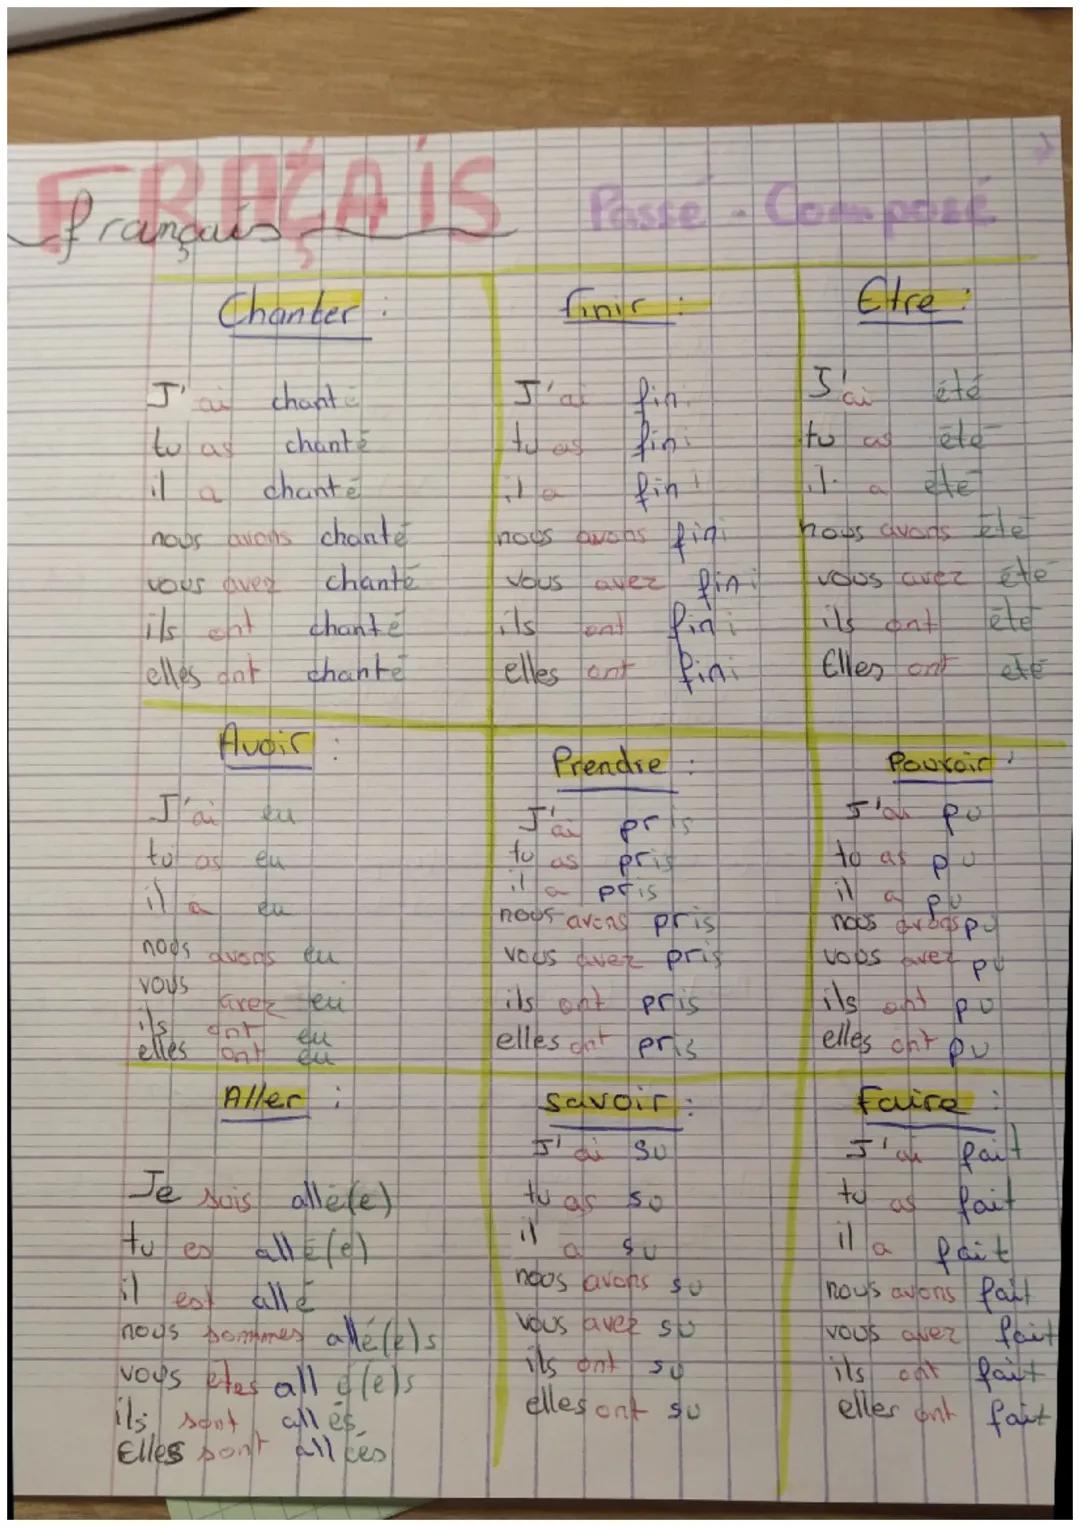 FRAÇAIS
français
Passé - Composé
Chanter :
J'ai chanté
tu as chanté
il a chanté
nous avons chanté
vous avez chanté
ils ont chanté
elles ont chanté
finir :
J'ai fini
tu as fini
il a fini
nous avons fini
vous avez fini
ils ont fini
elles ont fini
Etre :
J'ai été
tu as été
il a été
nous avons été
vous avez été
ils ont été
Elles ont été
Avoir :
J'ai eu
tu as eu
il a eu
nous avons eu
vous avez eu
ils ont eu
elles ont eu
Prendre :
J'ai pris
tu as pris
il a pris
nous avons pris
vous avez pris
ils ont pris
elles ont pris
Pouvoir :
J'ai pu
tu as pu
il a pu
nous avons pu
vous avez pu
ils ont pu
elles ont pu
Aller :
Je suis allé(e)
tu es allé(e)
il est allé
nous sommes allé(e)s
vous êtes allé(e)s
ils sont allés
Elles sont allées
savoir :
J'ai su
tu as su
il a su
nous avons su
vous avez su
ils ont su
elles ont su
faire :
J'ai fait
tu as fait
il a fait
nous avons fait
vous avez fait
ils ont fait
elles ont fait